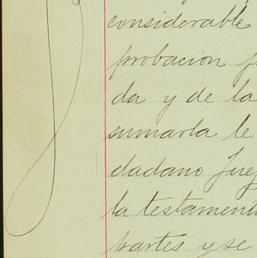 considerable
probacion
da y de la
sumarla le
dadano Juez
la testament
partes y se